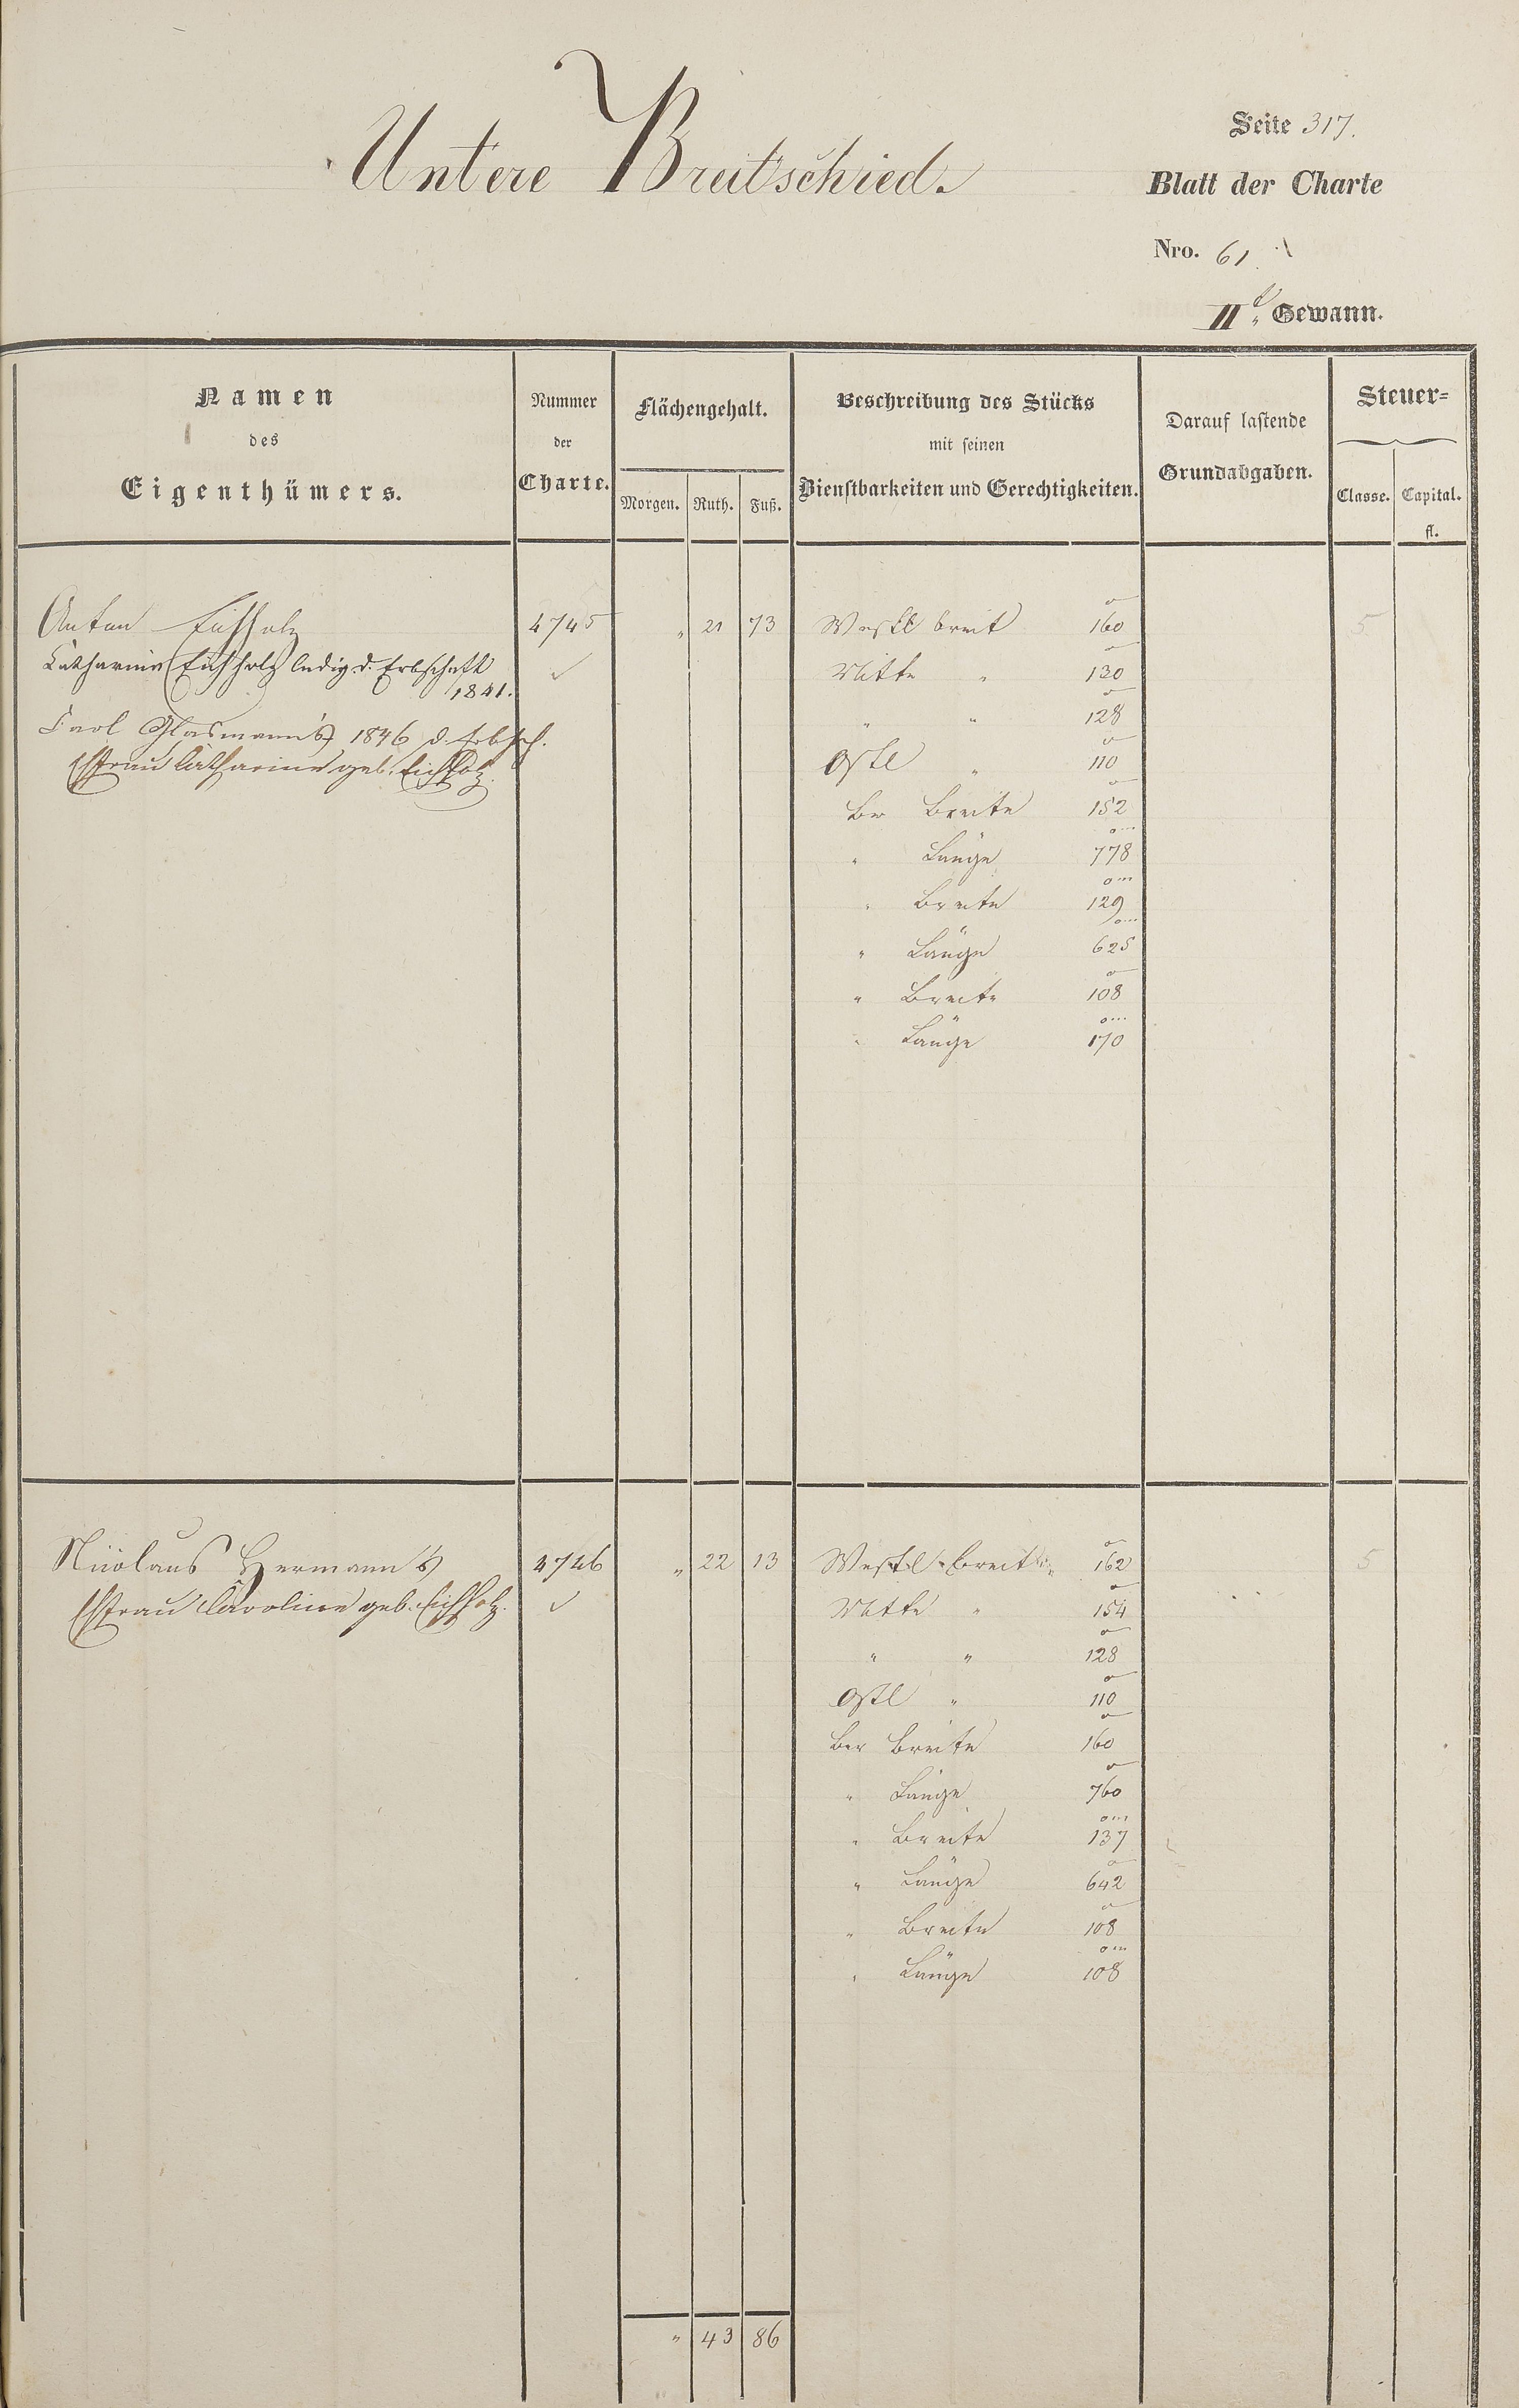 Untere Breitschied.
Seite 317.
Blatt der Charte
Nro. 61.
II t. Gewann.
Namen
des
Eigenthümers.
Nummer
der
Charte.
Flächengehalt.
Morgen. Ruth. Fuß.
Beschreibung des Stücks
mit seinen
Dienstbarkeiten und Gerechtigkeiten.
Darauf lastende
Grundabgaben.
Steuer-
Classe. Capital.
fl.
Anton Eichholz 4745 " 21 73 Westl breit 160 5
Catharine Eichholz ledig d. Erbschaft ✓ Mitte " 130
1841.
" " 128
Carl Glasmann's 1846 d. Erbsch.
Ehfrau Catharine geb. Eichholz. Ostl " 110
Ber Breite 152
" Länge 778
" Breite 129
" Länge 625
" Breite 108
" Länge 170
Nicolaus Hermann's 4746 " 22 13 Westl breit 162 5
Ehfrau Caroline geb. Eichholz. ✓ Mitte " 154
" " 128
Ostl " 110
Ber Breite 160
" Länge 760
" Breite 137
" Länge 642
" Breite 108
" Länge 108
" 43 86